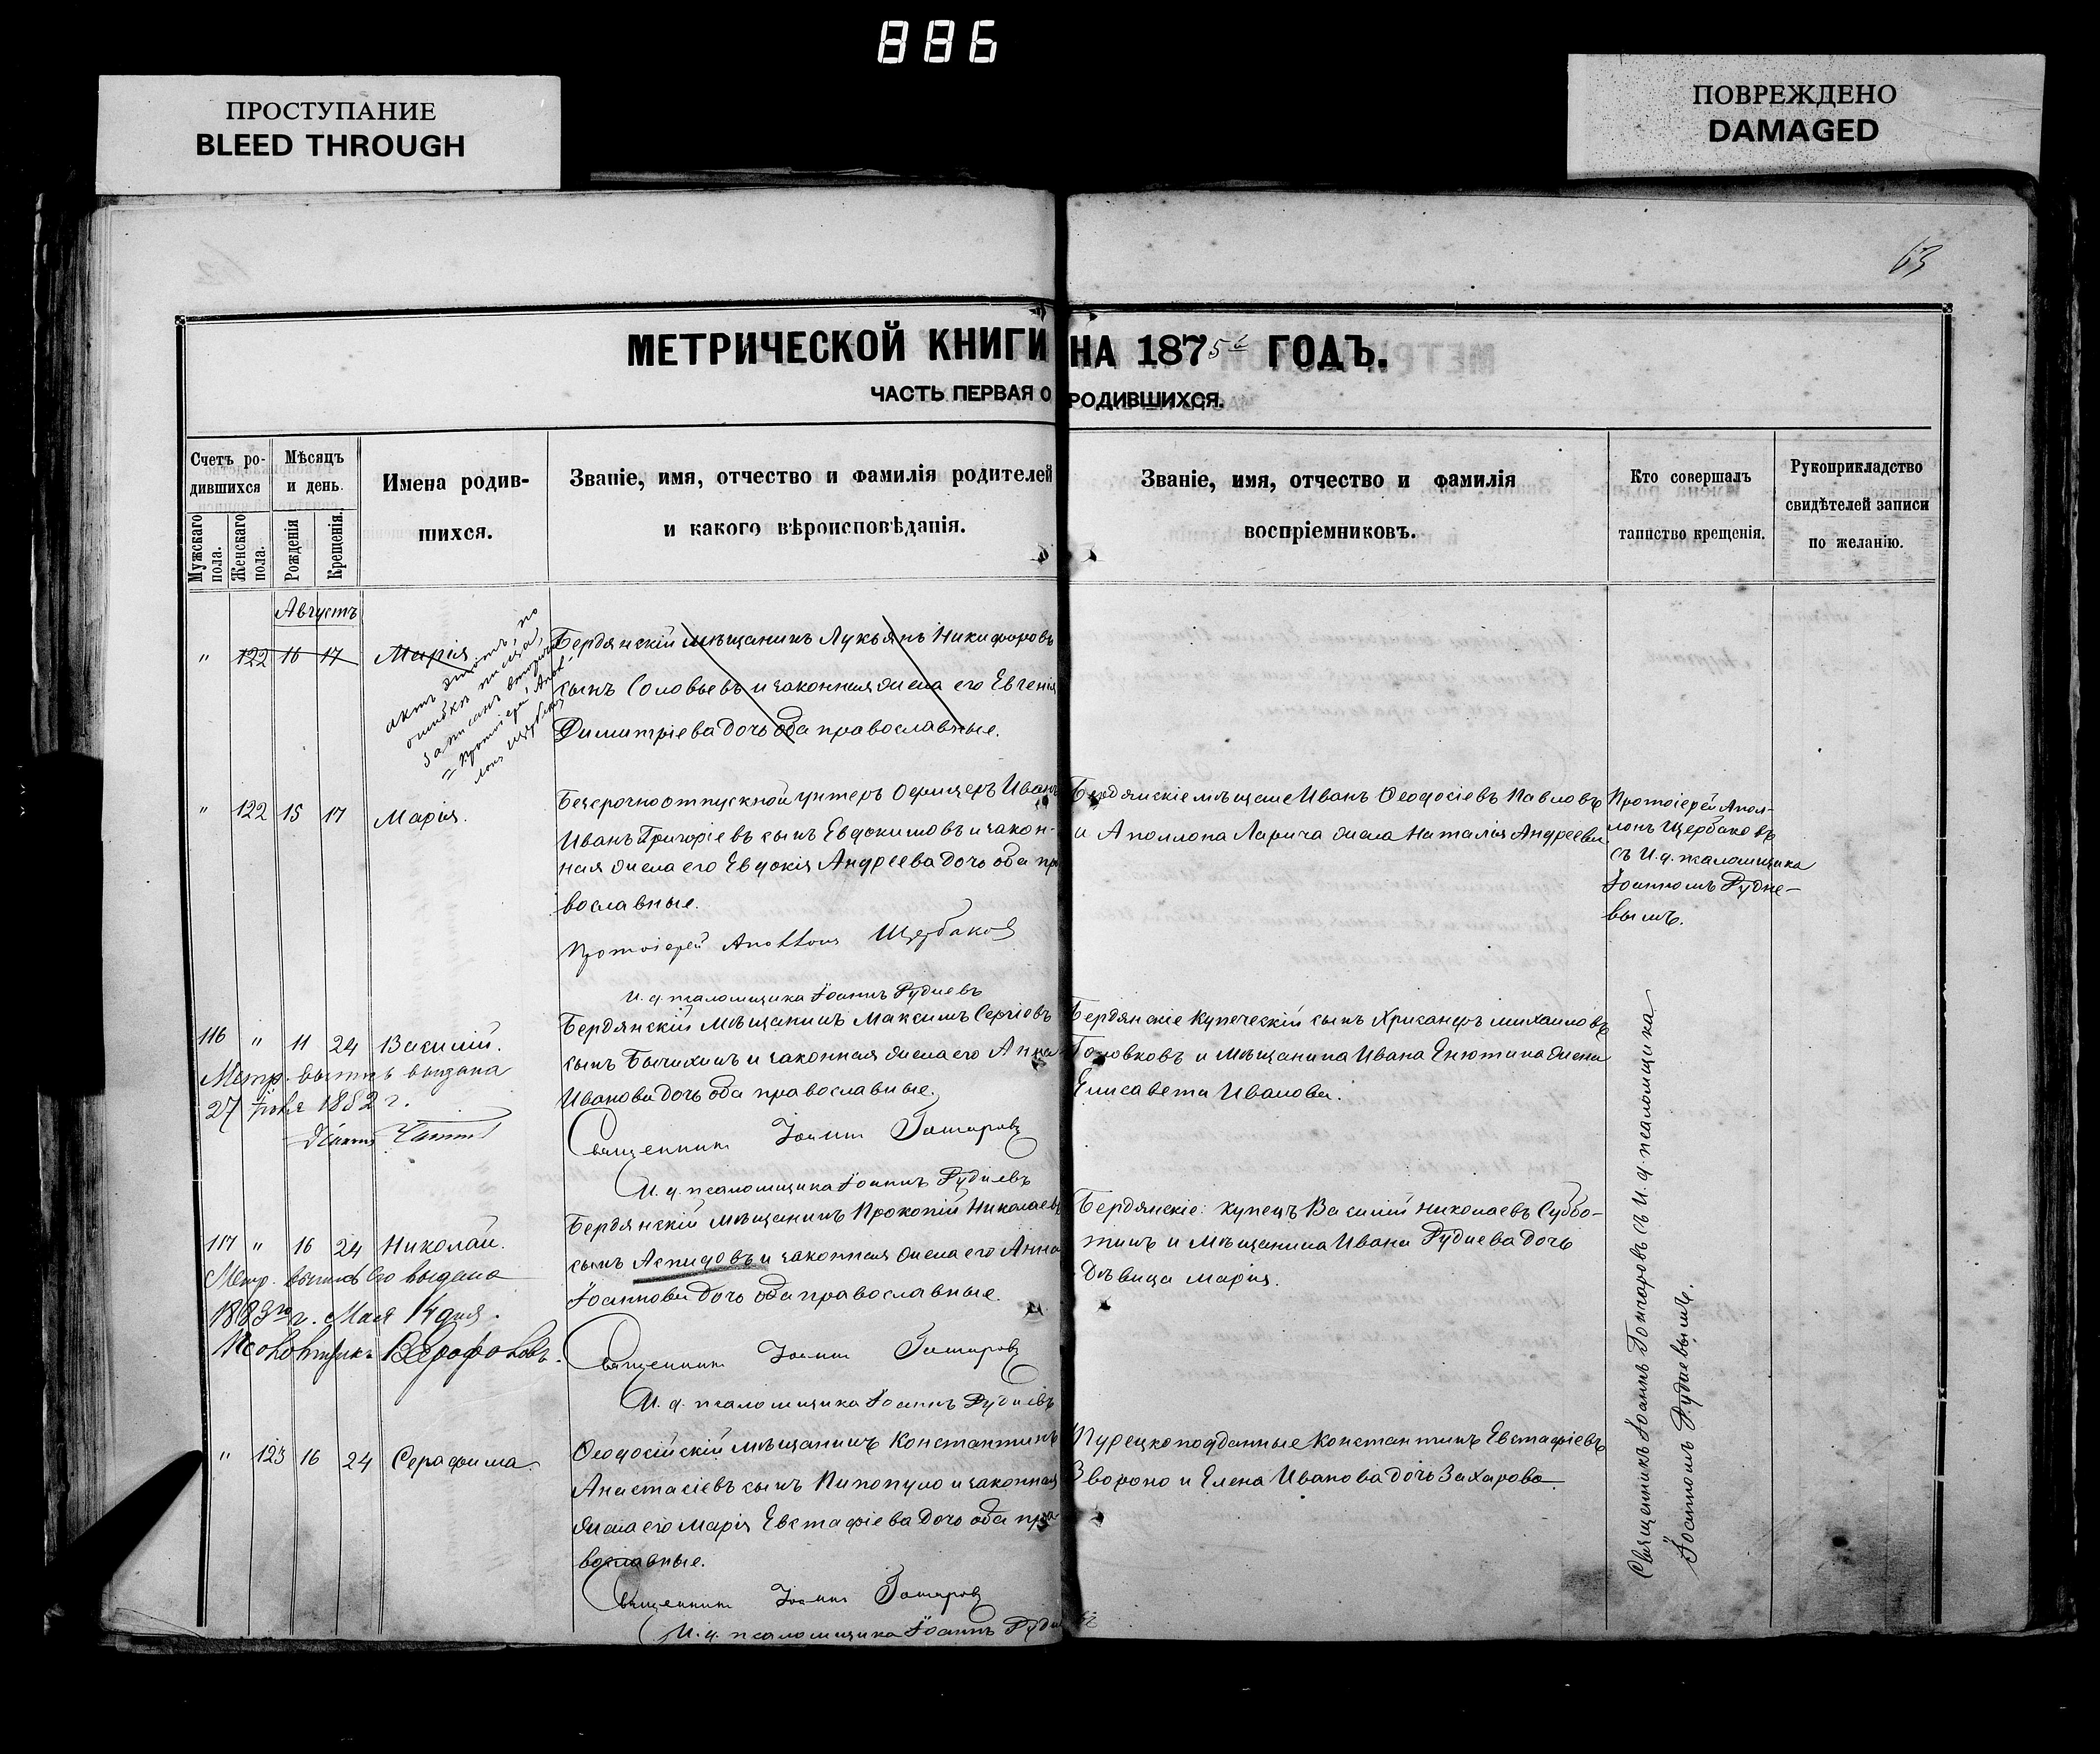 886
ПРОСТУПАНИЕ
BLEED THROUGH
ПОВРЕЖДЕНО
DAMAGED
63
МЕТРИЧЕСКОЙ КНИГИ НА 1875й ГОДЪ.
ЧАСТЬ ПЕРВАЯ О РОДИВШИХСЯ.
Счетъ ро-
дившихся
Мужскаго пола.
Женскаго пола.
Мѣсяцъ
и день.
Рожденія
Крещенія.
Имена родив-
шихся.
Званіе, имя, отчество и фамилія родителей
и какого вѣроисповѣданія.
Званіе, имя, отчество и фамилія
воспріемниковъ.
Кто совершалъ
таинство крещенія.
Рукоприкладство
свидѣтелей записи
по желанію.
Августъ
" 122 16 17 Марія
актъ этотъ, по
ошибкѣ писца,
записанъ вторично
Протоіерей Апол-
лонъ Щербаковъ
Бердянскій мѣщанинъ Лукьянъ Никифоровъ
сынъ Соловьевъ и законная жена его Евгенія
Димитріева дочь оба православные.
" 122 15 17 Марія.
Безсрочноотпускной унтеръ Офицеръ Иванъ
Иванъ Григорьевъ сынъ Евдокимовъ и закон-
ная жена его Евдокія Андреева дочь оба пра
вославные.
Протоіерей Аполлонъ Щербаковъ
И. д. псаломщика Іоаннъ Рудневъ
Бердянскіе мѣщане Иванъ Ѳеодосіевъ Павловъ
и Аполлона Ларича жена Наталія Андреева
Протоіерей Апол-
лонъ Щербаковъ
съ И. д. псаломщика
Іоанномъ Рудне-
вымъ.
116 " 11 24 Василій.
Метр. выпись выдана
27 1882 г.
Бердянскій Мѣщанинъ Максимъ Сергіевъ
сынъ Бычихинъ и законная жена его Анна
Иванова дочь оба православные.
Священникъ Іоаннъ Гончаровъ
И. д. псаломщика Іоаннъ Рудневъ
Бердянскіе Купеческій сынъ Хрисанфъ Михаиловъ
Головковъ и Мѣщанина Ивана Енютина жена
Елисавета Иванова.
117 " 16 24 Николай.
Метр. выпись его выдана
1883го г. Мая 14 дня.
Псаломщикъ
Бердянскій Мѣщанинъ Прокопій Николаевъ
сынъ Аспидовъ и законная жена его Анна
Іоаннова дочь оба православные.
Священникъ Іоаннъ Гончаровъ
И. д. псаломщика Іоаннъ Рудневъ
Бердянскіе: купецъ Василій Николаевъ Суббо-
тинъ и Мѣщанина Ивана Руднева дочь
Дѣвица Марія.
Священникъ Іоаннъ Гончаровъ съ И. д. псаломщика
Іоанномъ Рудневымъ.
" 123 16 24 Серафима.
Ѳеодосійскій мѣщанинъ Константинъ
Анастасіевъ сынъ Пипопуло и законная
жена его Марія Евстафіева дочь оба пра-
вославные.
Священникъ Іоаннъ Гончаровъ
И. д. псаломщика Іоаннъ Рудневъ
Турецкоподданные Константинъ Евстафіевъ
Звороно и Елена Иванова дочь Захарова.